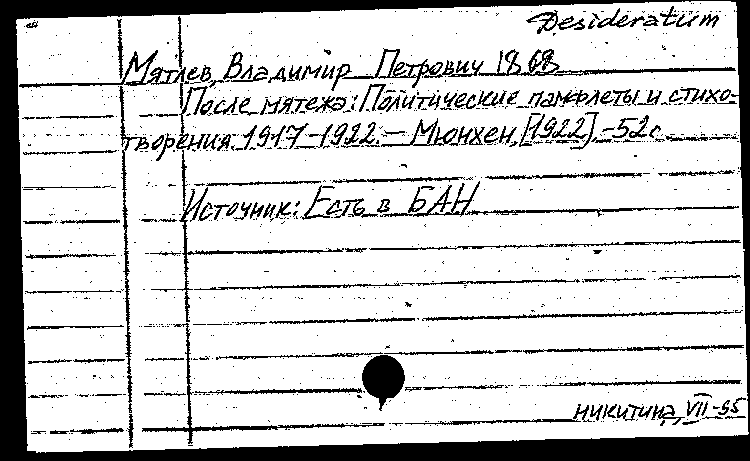 Desideratum
Мятлев, Владимир Петрович 1868
После мятежа: Политические памфлеты и стихо-
творения. 1917-1922. - Мюнхен, [1922]. - 52 с.
Источник: Есть в БАН
никитина, VII-95